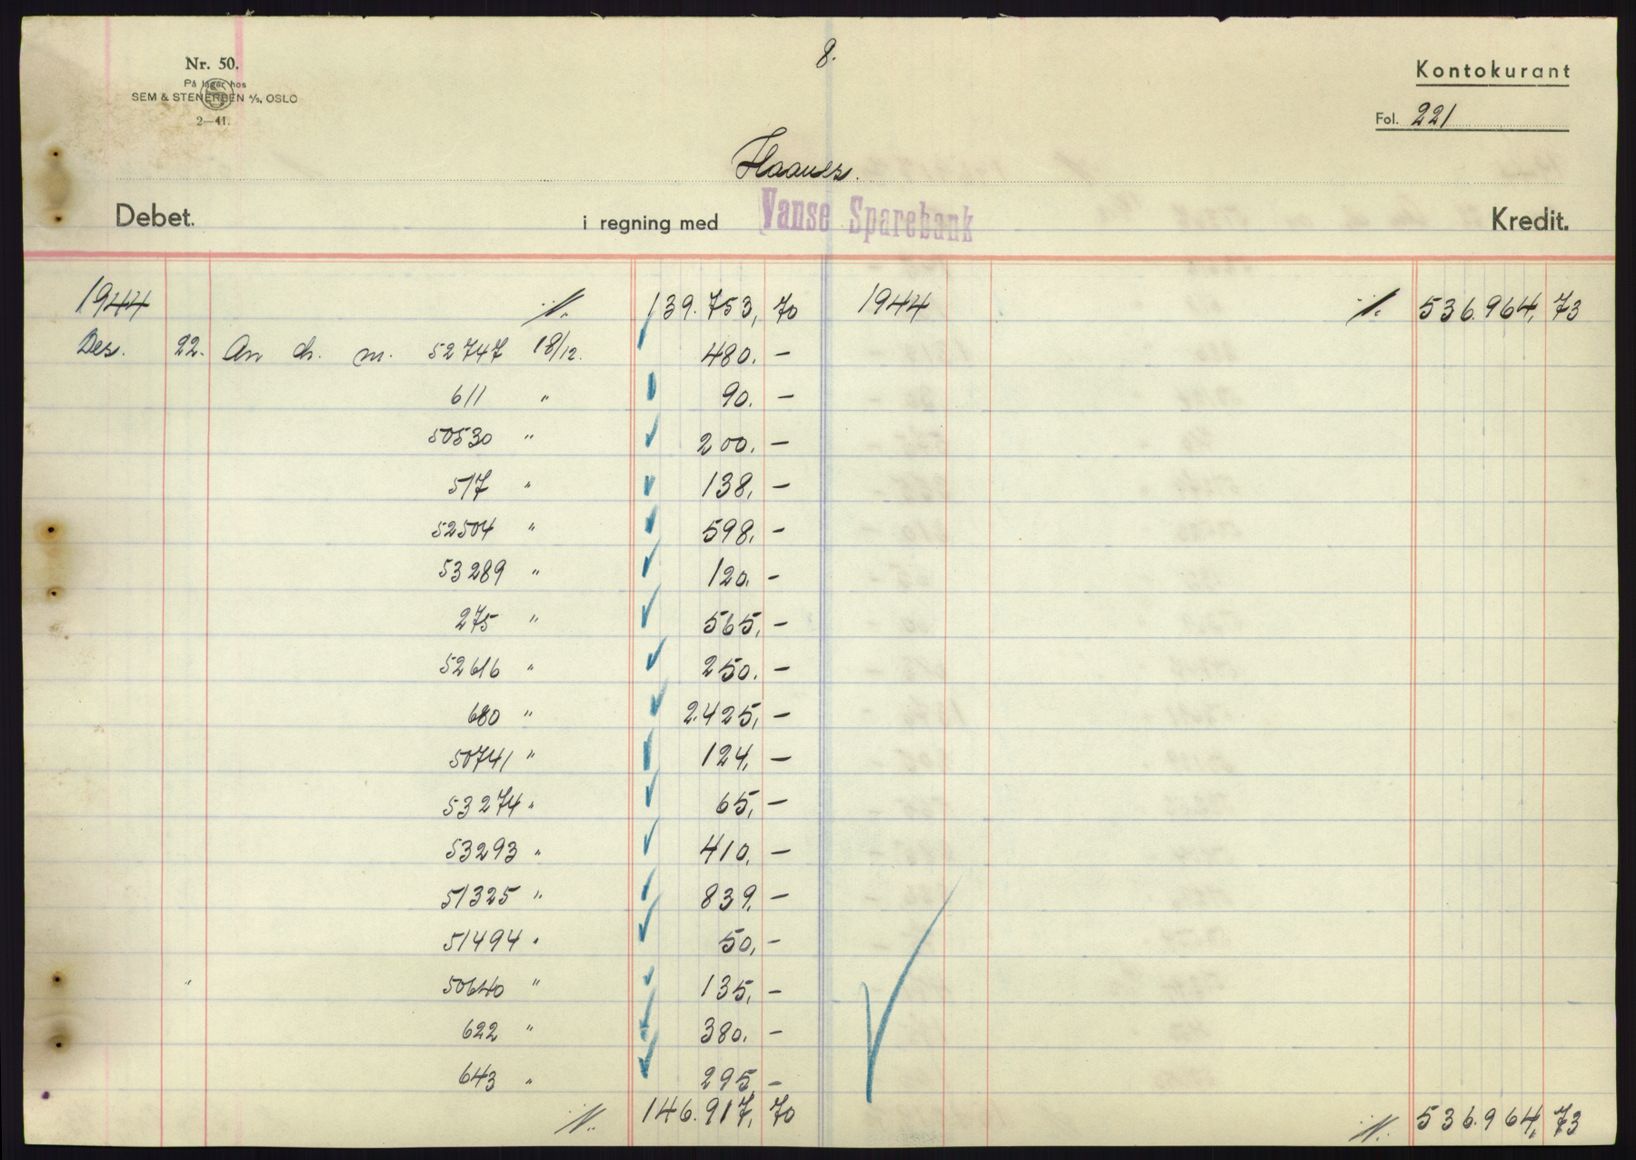 8.
Nr. 50.
På lager hos
SEM & STENERSEN A/S, OSLO
2—41.
Kontokurant
Fol. 221
Debet. i regning med Vanse Sparebank Kredit.
1944 139.753,70 1944 536.964,73
Des. 22. An ch. m. 52747 18/12. 480.—
611 " 90.—
50530 " 200.—
517 " 138,—
52504 " 598,—
53289 " 120.—
275 " 565,—
52616 " 250.—
680 " 2.425,—
50741 " 124,—
53274 " 65,—
53293 " 410,—
51325 " 839,—
51494 " 50,—
50640 " 135,—
622 " 380.—
643 " 295,—
146.917,70 536.964,73